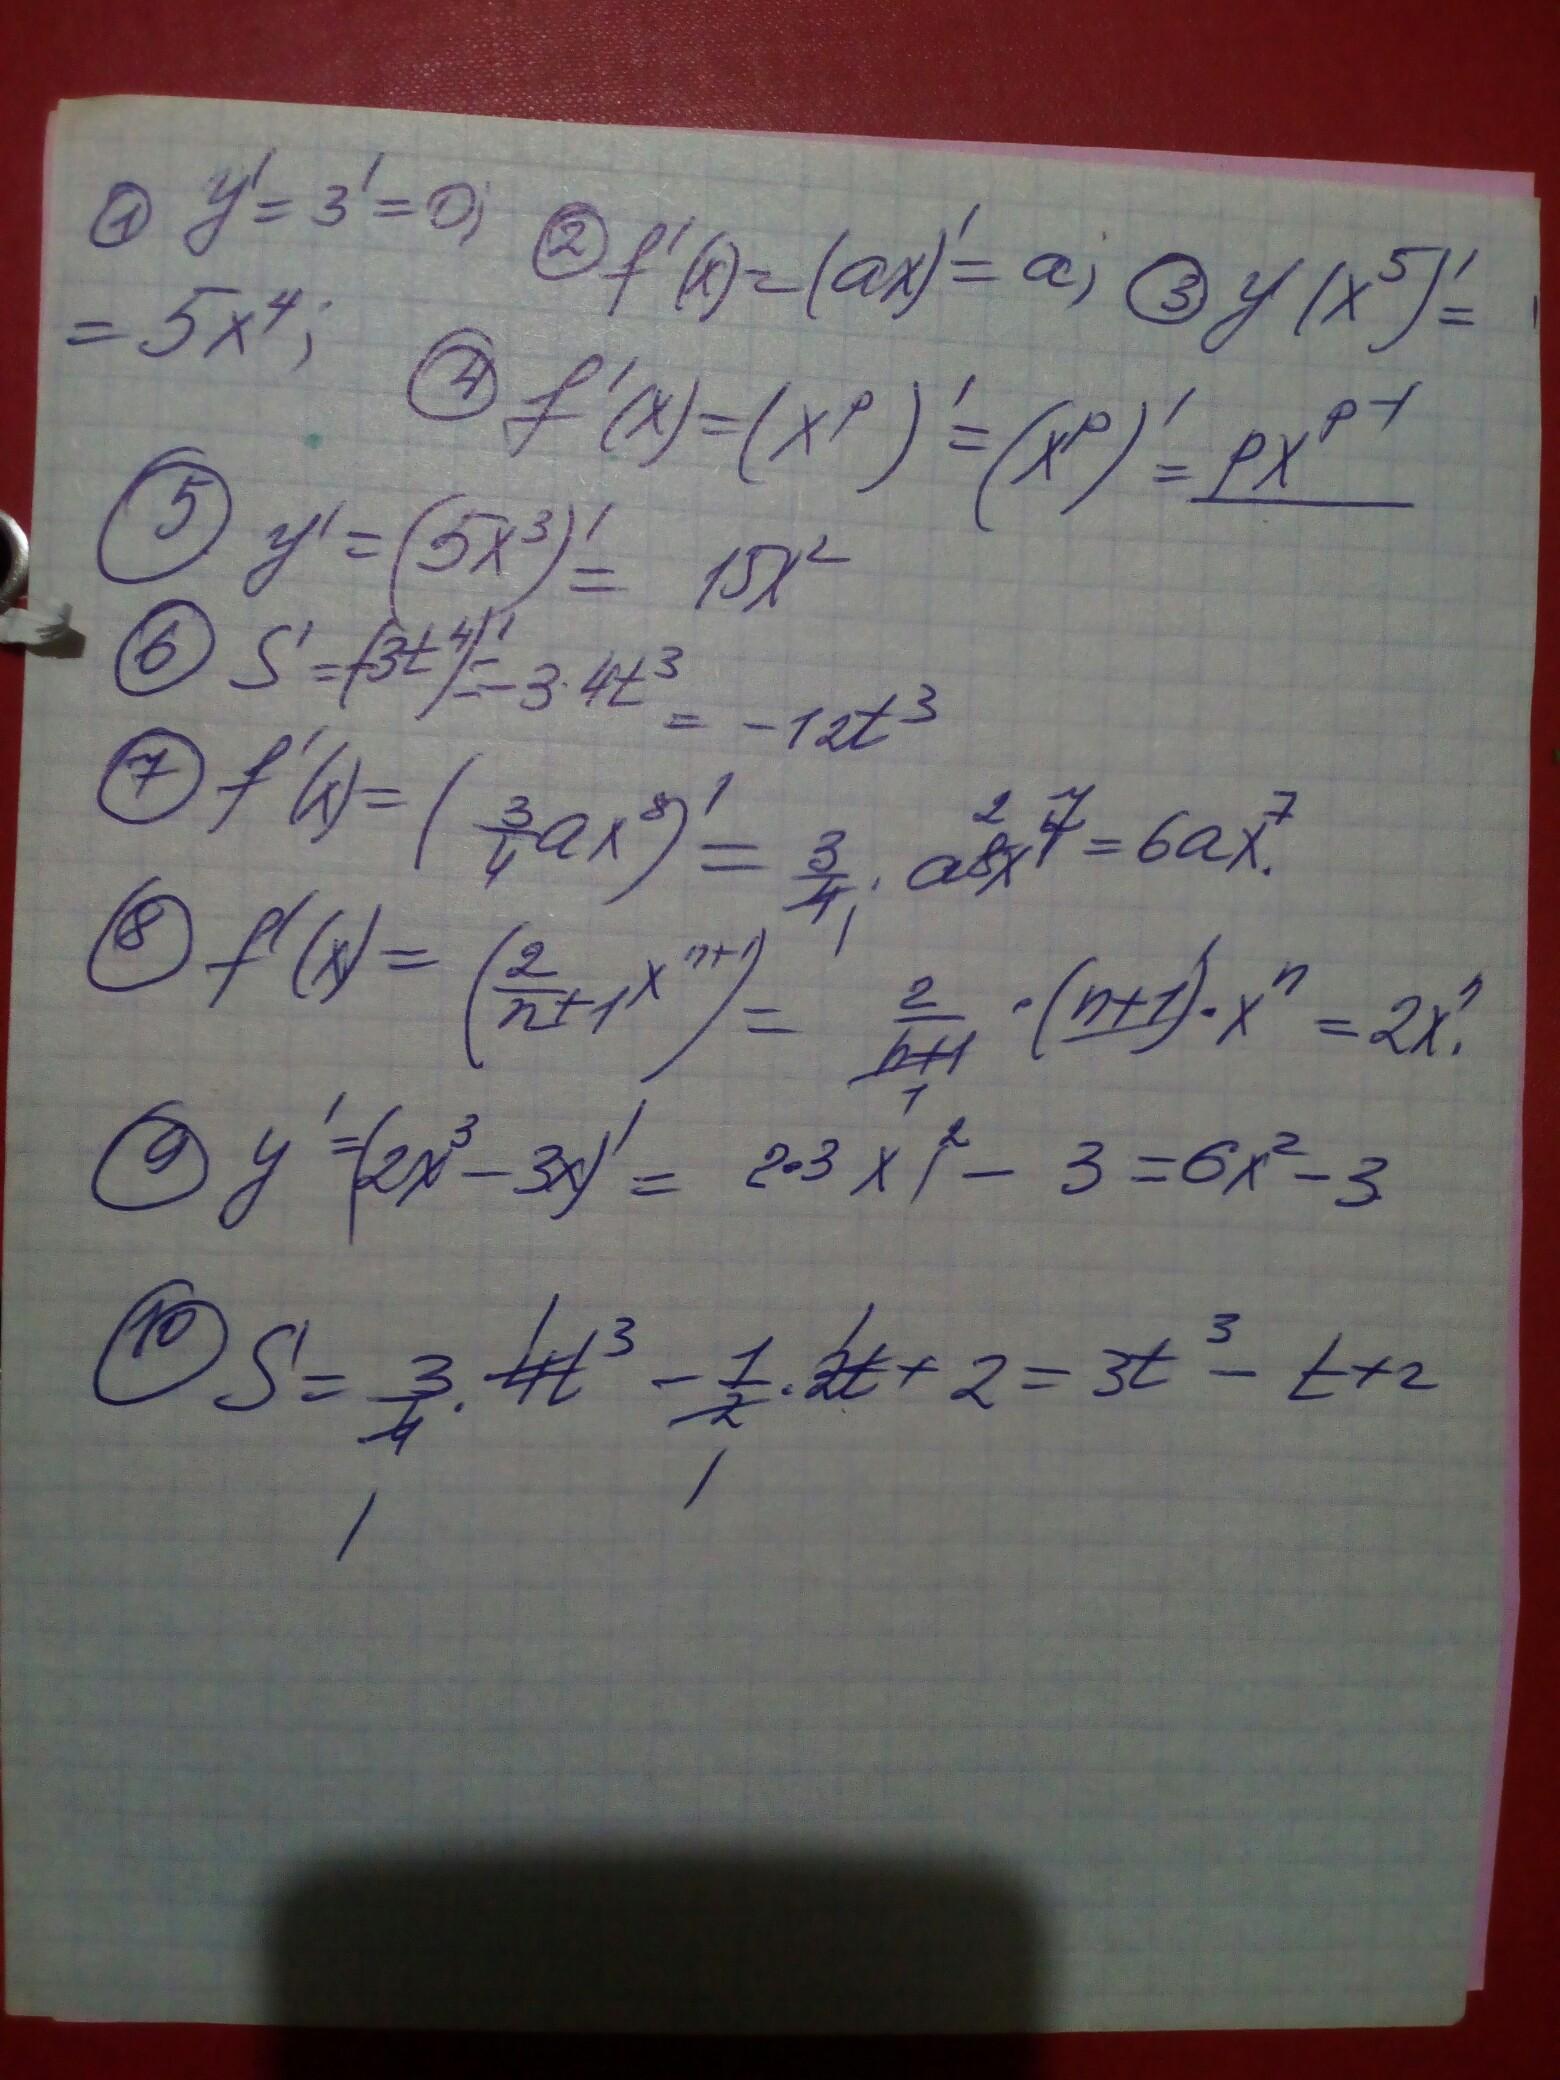 ① y' = 3' = 0; ② f'(x) = (ax)' = a; ③ y' (x⁵)' =
= 5x⁴; ④ f'(x) = (xᵖ)' = (xᵖ)' = pxᵖ⁻¹
⑤ y' = (5x³)' = 15x²
⑥ S' = (-3t⁴)' = -3·4t³ = -12t³
⑦ f'(x) = (3/4 ax⁸)' = 3/4 · a8x⁷ = 6ax⁷.
⑧ f'(x) = (2/(n+1) xⁿ⁺¹)' = 2/(n+1) · (n+1) · xⁿ = 2xⁿ.
⑨ y' = (2x³ - 3x)' = 2·3x² - 3 = 6x² - 3
⑩ S' = 3/4 · 4t³ - 1/2 · 2t + 2 = 3t³ - t + 2